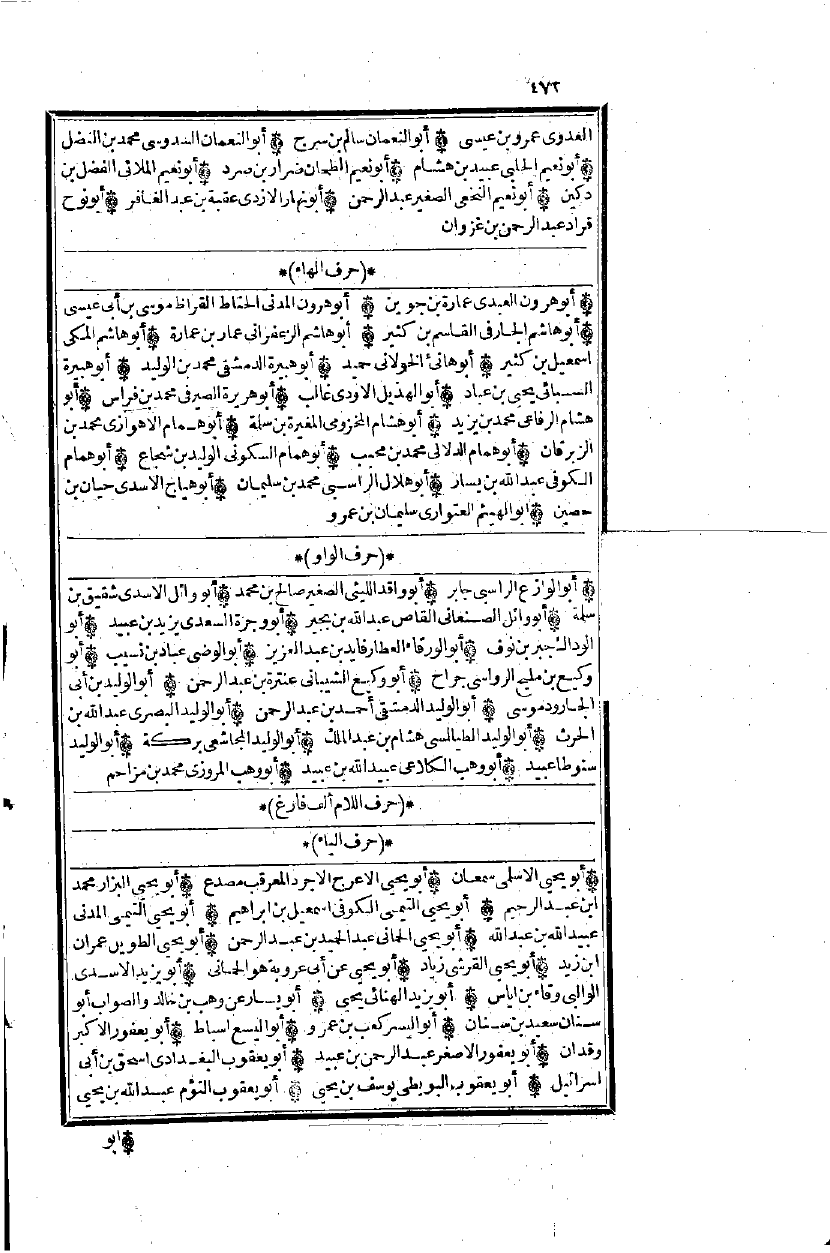 ٤٧٢
العدوى عمرو بن عيسى ۞ أبو النعمان سالم بن سرج ۞ أبو النعمان السدوسى محمد بن الفضل
۞ أبو نعيم الحلبى عبيد بن هشام ۞ أبو نعيم الطحان ضرار بن صرد ۞ أبو نعيم الملائى الفضل بن
دكين ۞ أبو نعيم النخعى الصغير عبد الرحمن ۞ أبو نهار الازدى عقبة بن عبد الغافر ۞ أبو نوح
قراد عبد الرحمن بن غزوان
*(حرف الهاء)*
۞ أبو هرون العبدى عمارة بن جوين ۞ أبو هرون المدنى الحناط القراظ موسى بن أبى عيسى
۞ أبو هاشم الحجازى القاسم بن كثير ۞ أبو هاشم الزعفرانى عمار بن عمارة ۞ أبو هاشم المكى
اسمعيل بن كثير ۞ أبو هانئ الخولانى حميد ۞ أبو هبيرة الدمشقى محمد بن الوليد ۞ أبو هبيرة
السبائى يحيى بن عباد ۞ أبو الهذيل الاودى غالب ۞ أبو هريرة الصيرفى محمد بن فراس ۞ أبو
هشام الرفاعى محمد بن يزيد ۞ أبو هشام المخزومى المغيرة بن سلمة ۞ أبو همام الاهوازى محمد بن
الزبرقان ۞ أبو همام الدلالى محمد بن محبب ۞ أبو همام السكونى الوليد بن شجاع ۞ أبو همام
الكوفى عبد الله بن يسار ۞ أبو هلال الراسبى محمد بن سليمان ۞ أبو هياج الاسدى حيان بن
حصين ۞ ابو الهيثم العتوارى سليمان بن عمرو
*(حرف الواو)*
۞ أبو الوازع الراسبى جابر ۞ أبو واقد الليثى الصغير صالح بن محمد ۞ أبو وائل الاسدى شقيق بن
سلمة ۞ أبو وائل الصنعانى القاص عبد الله بن بحير ۞ أبو وجزة السعدى يزيد بن عبيد ۞ أبو
الوداك جبر بن نوف ۞ أبو الورقاء العطار فايد بن عبد العزيز ۞ أبو الوضى عباد بن نسيب ۞ أبو
وكيع بن مليح الرواسى جراح ۞ أبو وكيع الشيبانى عنترة بن عبد الرحمن ۞ أبو الوليد بن أبى
الجارود موسى ۞ أبو الوليد الدمشقى أحمد بن عبد الرحمن ۞ أبو الوليد البصرى عبد الله بن
الحرث ۞ أبو الوليد الطيالسى هشام بن عبد الملك ۞ أبو الوليد المجاشعى بركة ۞ أبو الوليد
سنوطا عبيد ۞ أبو وهب الكلاعى عبيد الله بن عبيد ۞ أبو وهب المروزى محمد بن مزاحم
*(حرف اللام ألف فارغ)*
*(حرف الياء)*
۞ أبو يحيى الاسلمى سمعان ۞ أبو يحيى الاعرج الاجرد المعرقب مصدع ۞ أبو يحيى البزار محمد
ابن عبد الرحيم ۞ أبو يحيى التيمى الكوفى اسمعيل بن ابراهيم ۞ أبو يحيى التيمى المدنى
عبيد الله بن عبد الله ۞ أبو يحيى الحمانى عبد الحميد بن عبد الرحمن ۞ أبو يحيى الطويل عمران
ابن زيد ۞ أبو يحيى القرشى زياد ۞ أبو يحيى عن أبى عروبة هو الحمانى ۞ أبو يزيد الاسدى
الوالبى وقاء بن اياس ۞ أبو يزيد الهنائى يحيى ۞ أبو يسار عن وهب بن خالد والصواب أبو
سنان سعيد بن سنان ۞ أبو اليسر كعب بن عمرو ۞ أبو اليسع اسباط ۞ أبو يعفور الاكبر
وقدان ۞ أبو يعفور الاصغر عبد الرحمن بن عبيد ۞ أبو يعقوب البغدادى اسحق بن أبى
اسرائيل ۞ أبو يعقوب البويطى يوسف بن يحيى ۞ أبو يعقوب التوم عبد الله بن يحيى
۞ ابو